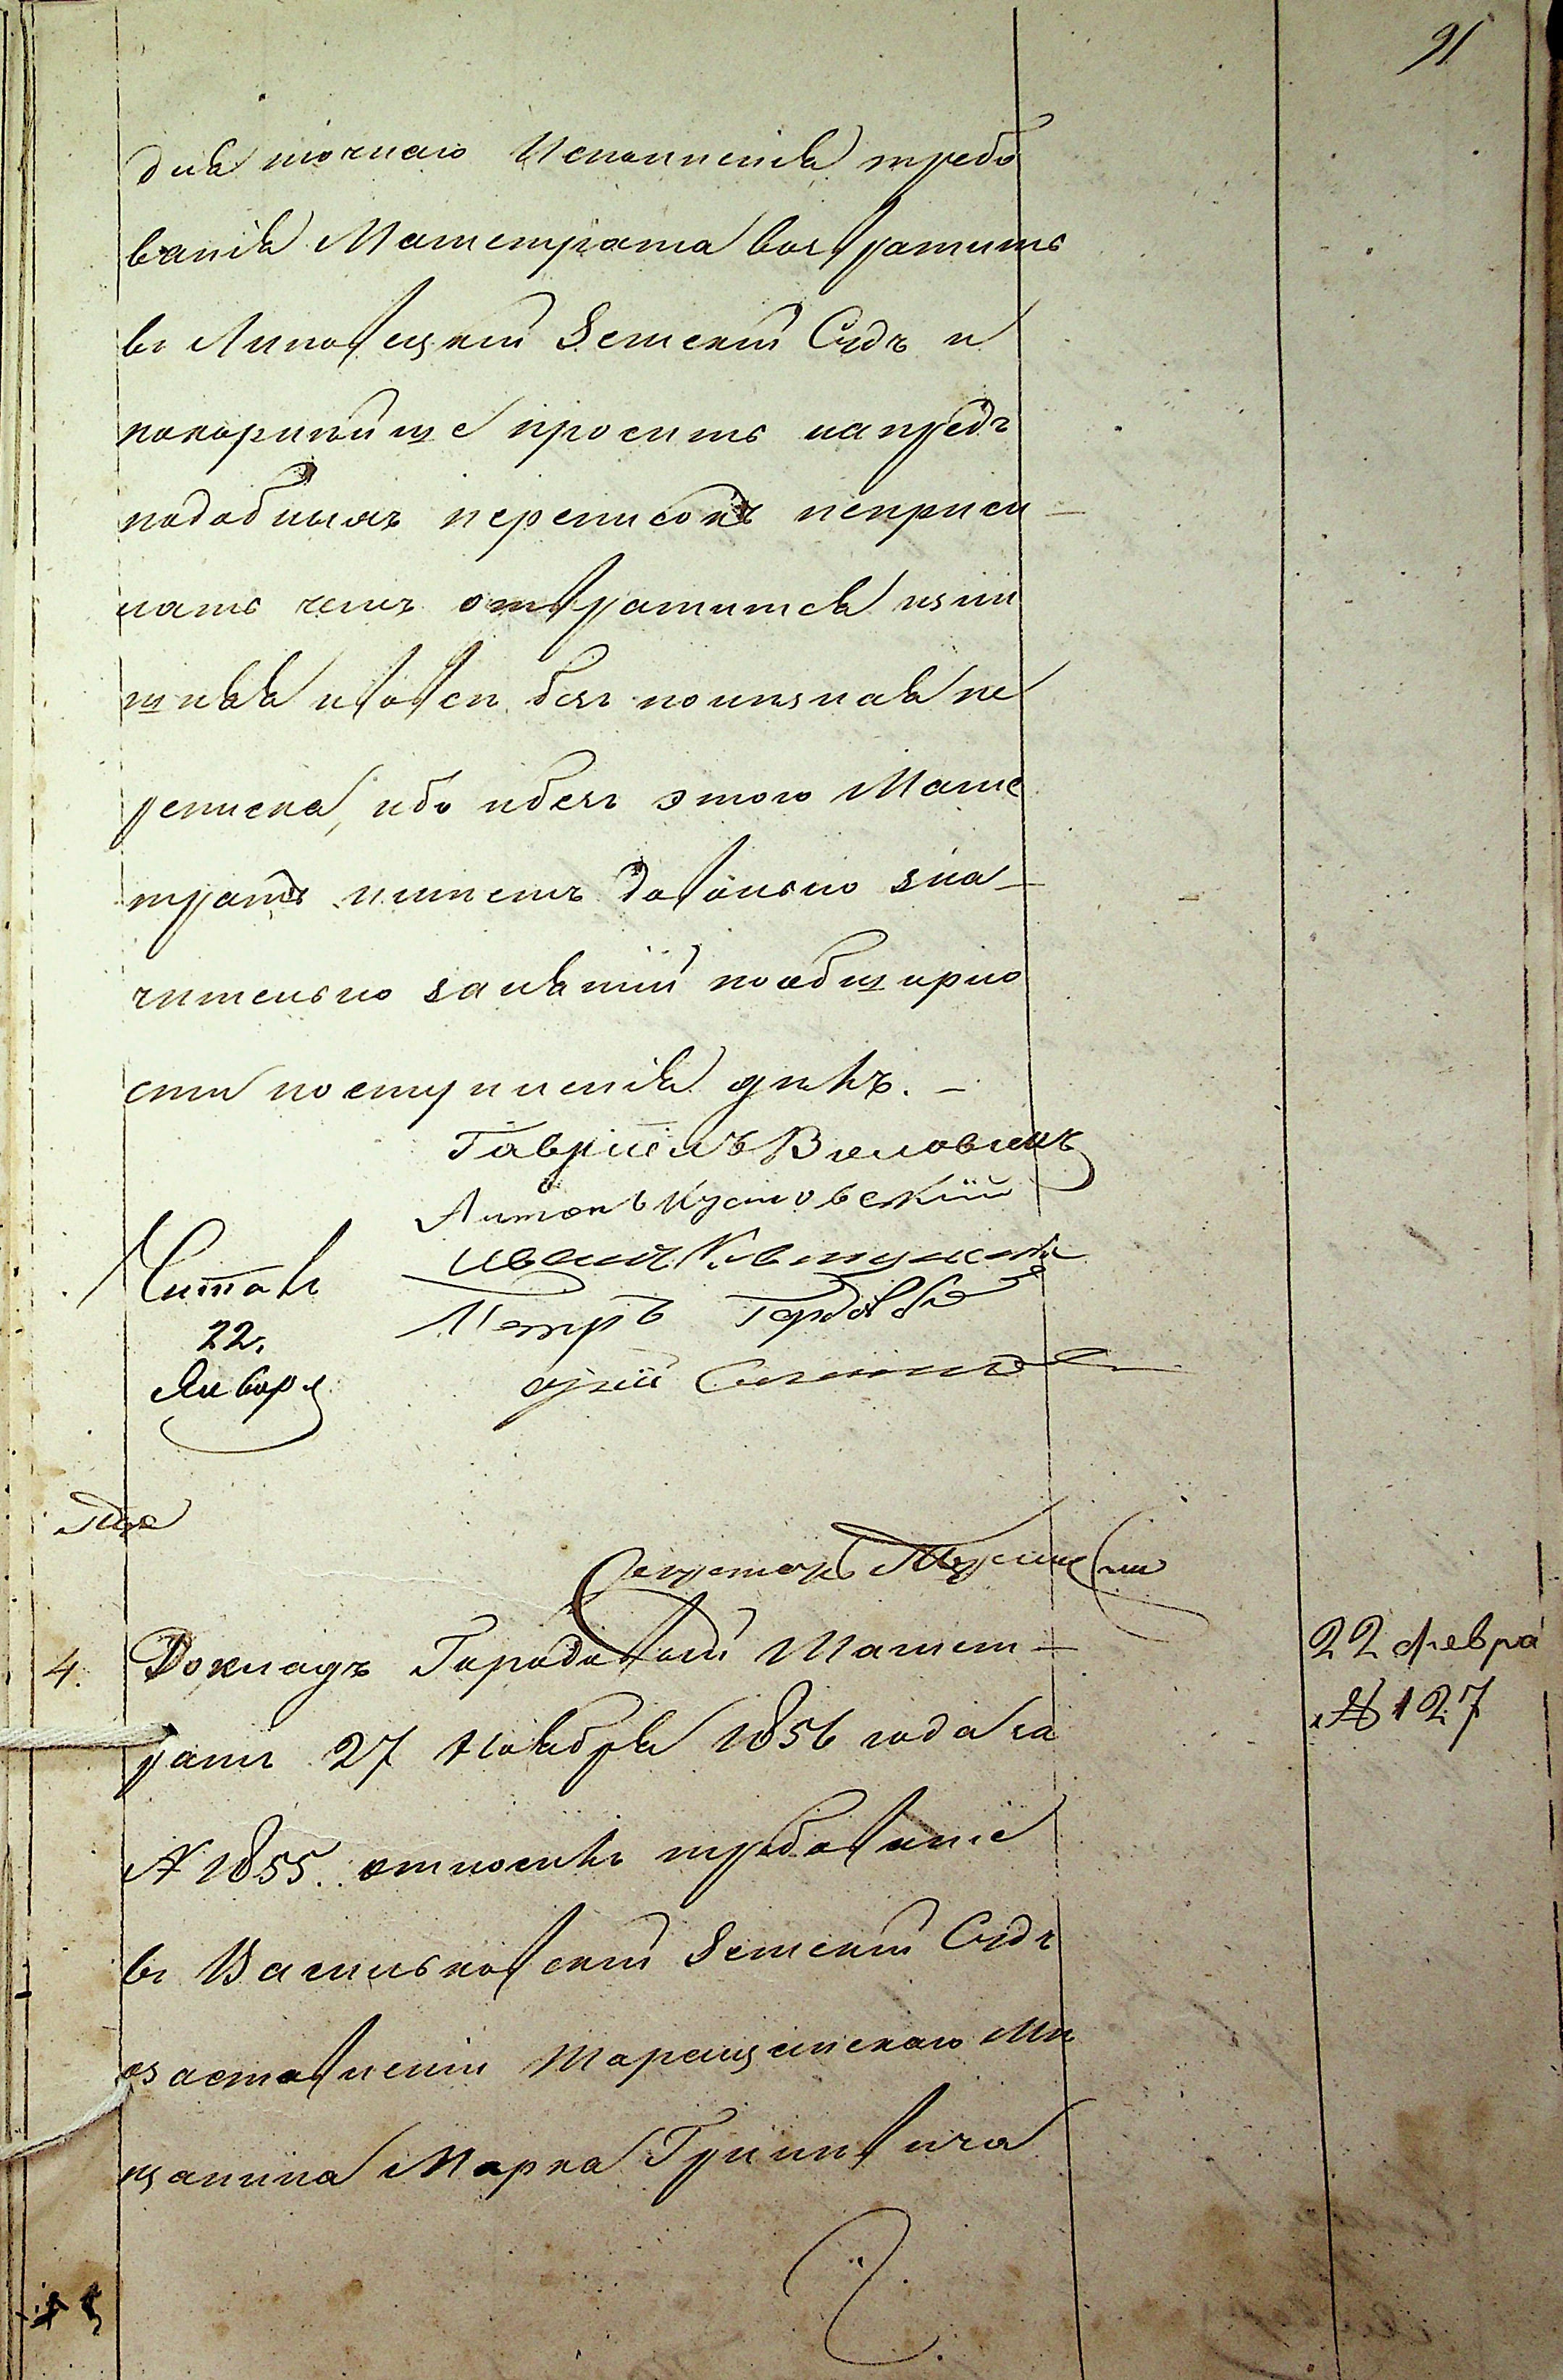 91
для точнаго Исполненія требо
ванія Магистрата возвратить
въ Липовецкій Земскій Судъ и
покорнѣйше просить напредъ
подобныхъ переписокъ неприсы-
лать чемъ отвратится изли
шняя и вовсе безъ полѣзная пе
реписка, ибо ибезъ этого Маги
тратъ имѣетъ довольно зна-
чительно занятій пообширно
сти поступленія дѣлъ. -
Гавріилъ
Антонъ
Иванъ
Петръ
Читалъ
22.
Января
Секретарь
4. Докладъ Городовой Магист-
ратъ 27 Ноября 1856 года за
№ 1855. относилъ требованіе
въ Васильковскій Земскій Судъ
озаставленіи Таращанскаго Мѣ
щанина Марка
22 февра
№ 127